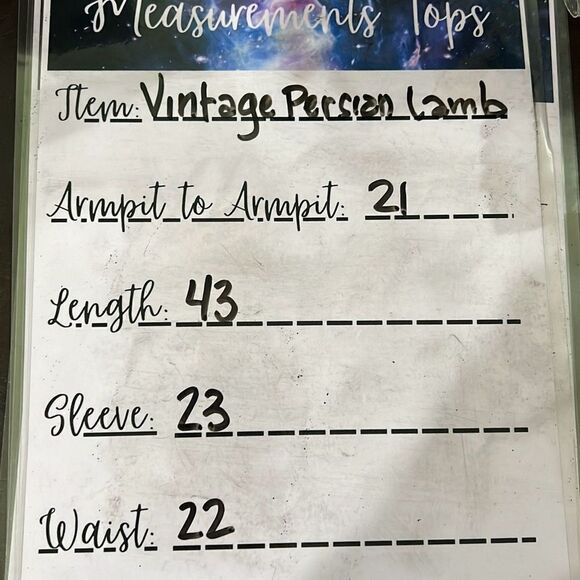 Measurements Tops
Item: Vintage Persian Lamb
Armpit to Armpit: 21
Length: 43
Sleeve: 23
Waist: 22